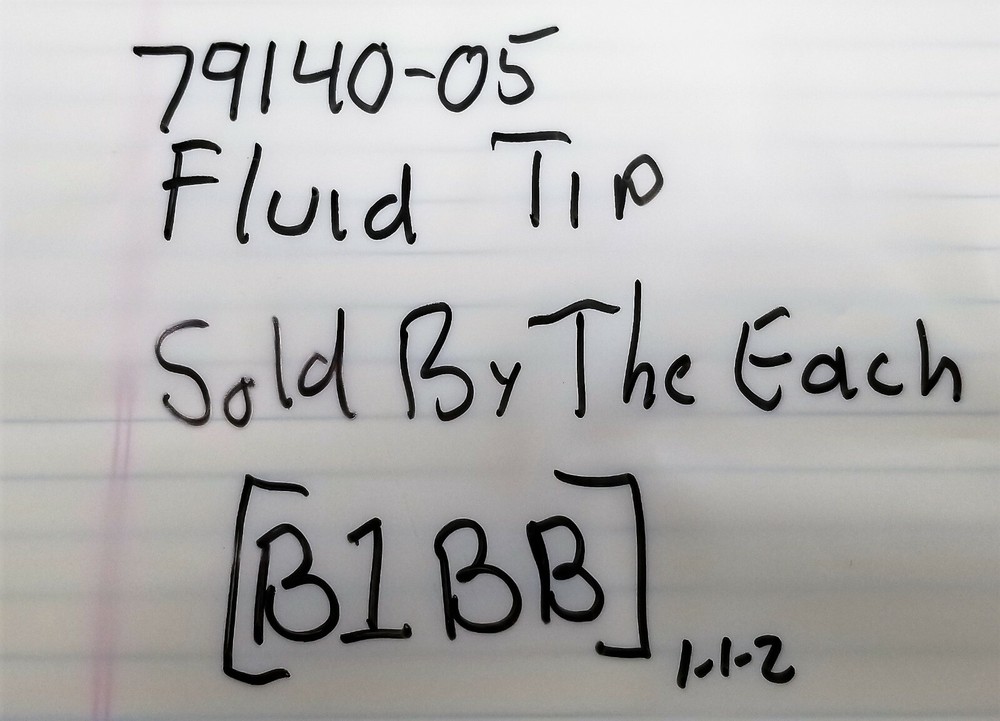 79140-05
Fluid Tip
Sold By The Each
[B1BB] 1-1-2